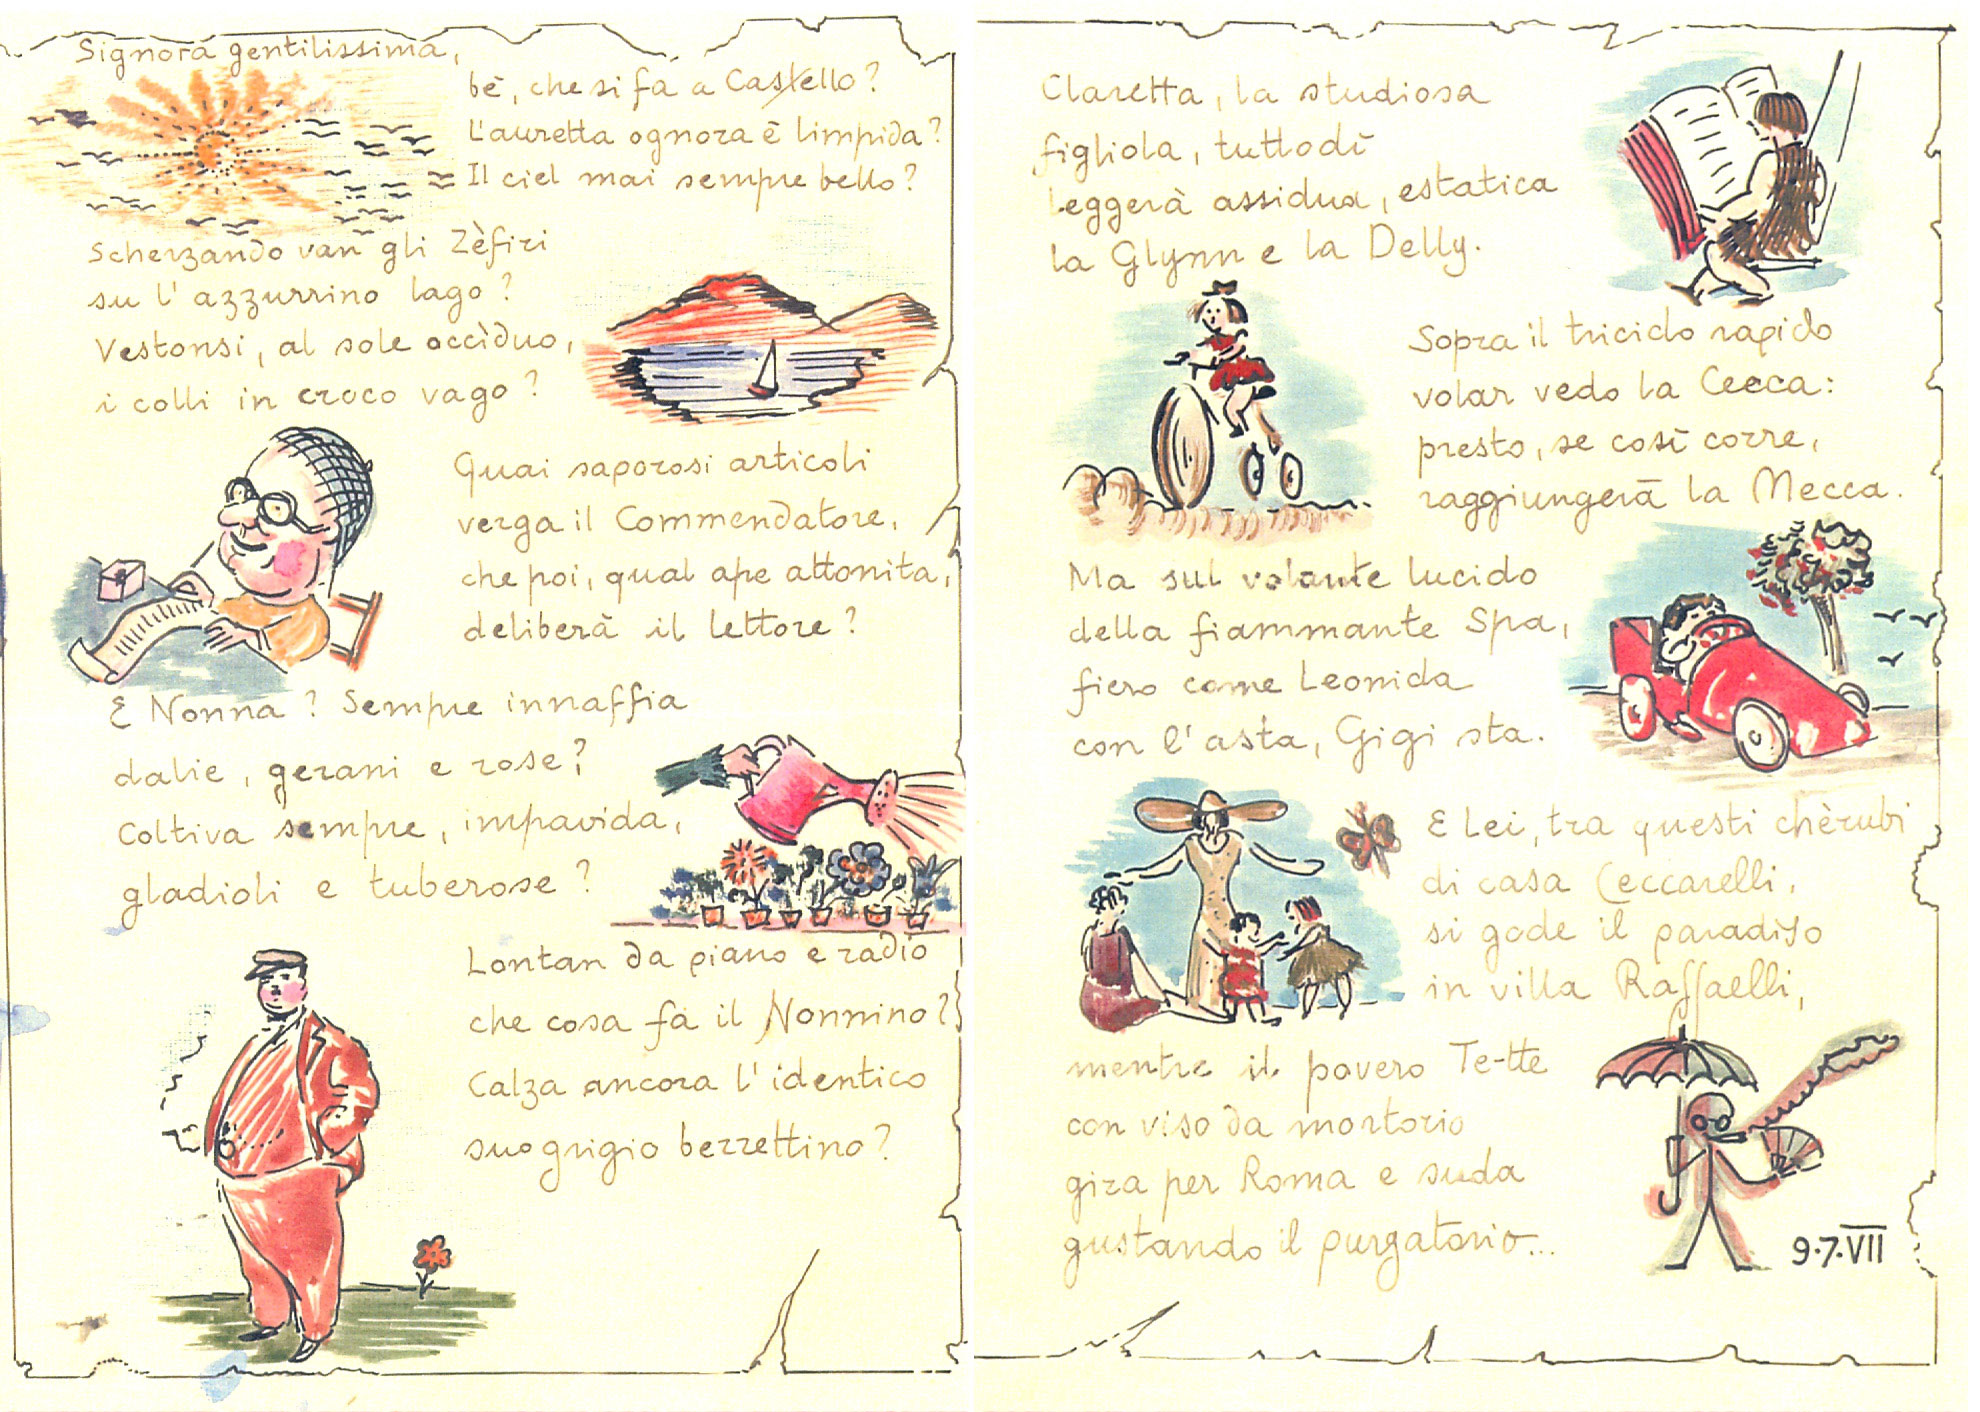 Signora gentilissima,
bè, che si fa a Castello?
L'auretta ognora è limpida?
Il ciel mai sempre bello?
Scherzando van gli Zèfiri
su l'azzurrino lago?
Vestonsi, al sole occìduo,
i colli in croco vago?
Quai saporosi articoli
verga il Commendatore,
che poi, qual ape attonita,
deliberà il lettore?
E Nonna? Sempre innaffia
dalie, gerani e rose?
Coltiva sempre, impavida,
gladioli e tuberose?
Lontan da piano e radio
che cosa fa il Nonnino?
Calza ancora l'identico
suo grigio berrettino?
Claretta, la studiosa
figliola, tuttodì
leggerà assidua, estatica
la Glynn e la Delly.
Sopra il triciclo rapido
volar vedo la Cecca:
presto, se così corre,
raggiungerà la Mecca.
Ma sul volante lucido
della fiammante Spa,
fiero come Leonida
con l'asta, Gigi sta.
E Lei, tra questi chèrubi
di casa Ceccarelli,
si gode il paradiso
in villa Raffaelli,
mentre il povero Te-tte
con viso da mortorio
gira per Roma e suda
gustando il purgatorio...
9.7.VII